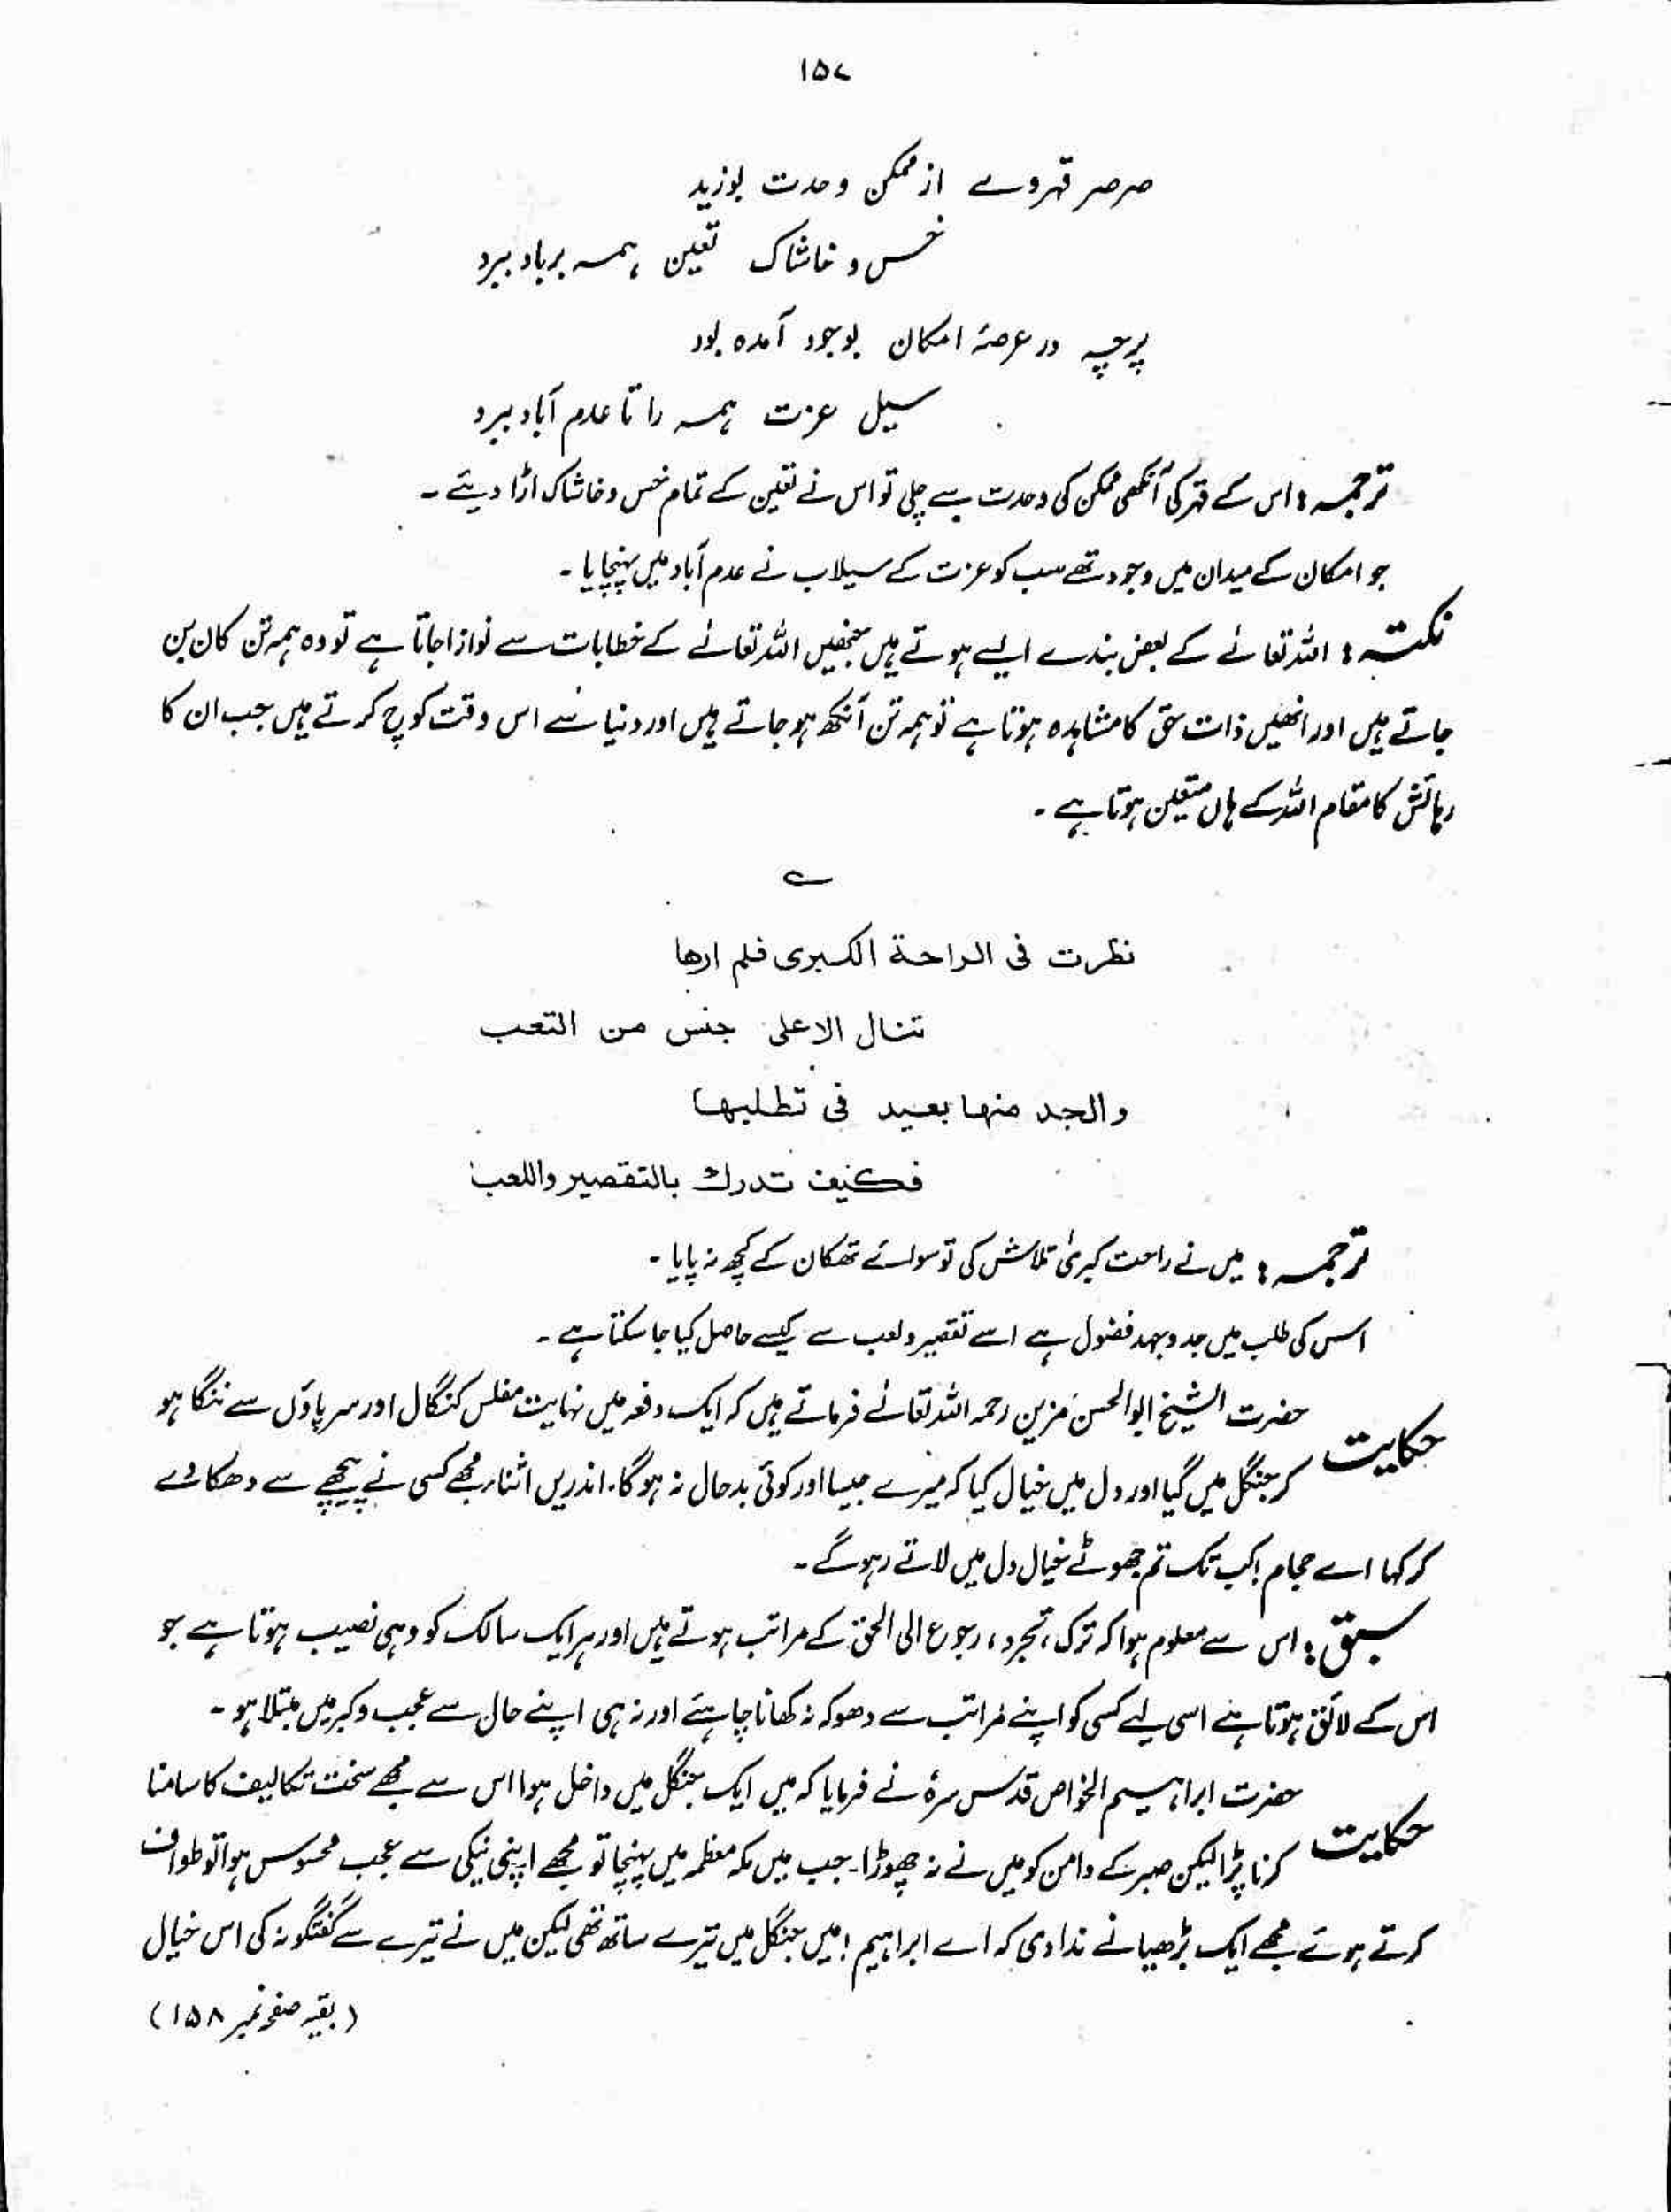 ۱۵۷
صرصر قہر وے از ممکن وحدت بوزید
خس و خاشاک تعین ہمہ برباد ببرد
ہرچہ در عرصۂ امکان بوجود آمدہ بود
سیل عزت ہمہ را تا عدم آباد ببرد
ترجمہ: اس کے قہر کی آندھی ممکن کی وحدت سے چلی تو اس نے تعین کے تمام خس و خاشاک اڑا دیئے۔
جو امکان کے میدان میں وجود تھے سب کو عزت کے سیلاب نے عدم آباد میں پہنچایا۔
نکتہ: اللہ تعالٰے کے بعض بندے ایسے ہوتے ہیں جنھیں اللہ تعالٰے کے خطابات سے نوازا جاتا ہے تو وہ ہمہ تن کان بن
جاتے ہیں اور انھیں ذات حق کا مشاہدہ ہوتا ہے تو ہمہ تن آنکھ ہو جاتے ہیں اور دنیا سے اس وقت کوچ کرتے ہیں جب ان کا
رہائش کا مقام اللہ کے ہاں متعین ہوتا ہے۔
ے
نظرت فی الراحة الکبری فلم ارھا
تنال الاعلی جنس من التعب
والجد منھا بعید فی تطلبھا
فکیف تدرك بالتقصیر واللعب
ترجمہ: میں نے راحت کبریٰ تلاش کی تو سوائے تھکان کے کچھ نہ پایا۔
اس کی طلب میں جد و جہد فضول ہے اسے تقصیر و لعب سے کیسے حاصل کیا جا سکتا ہے۔
حکایت حضرت الشیخ ابوالحسن مزین رحمہ اللہ تعالٰے فرماتے ہیں کہ ایک دفعہ میں نہایت مفلس کنگال اور سر پاؤں سے ننگا ہو
کر جنگل میں گیا اور دل میں خیال کیا کہ میرے جیسا اور کوئی بدحال نہ ہوگا۔ اندریں اثنار مجھے کسی نے پیچھے سے دھکا دے
کر کہا اے حجام! کب تک تم جھوٹے خیال دل میں لاتے رہو گے۔
سبق: اس سے معلوم ہوا کہ ترک، تجرد، رجوع الی الحق کے مراتب ہوتے ہیں اور ہر ایک سالک کو وہی نصیب ہوتا ہے جو
اس کے لائق ہوتا ہے اسی لیے کسی کو اپنے مراتب سے دھوکہ نہ کھانا چاہئے اور نہ ہی اپنے حال سے عجب و کبر میں مبتلا ہو۔
حکایت حضرت ابراہیم الخواص قدس سرہٗ نے فرمایا کہ میں ایک جنگل میں داخل ہوا اس سے مجھے سخت تکالیف کا سامنا
کرنا پڑا لیکن صبر کے دامن کو میں نے نہ چھوڑا۔ جب میں مکہ معظمہ میں پہنچا تو مجھے اپنی نیکی سے عجب محسوس ہوا تو طواف
کرتے ہوئے مجھے ایک بڑھیا نے ندا دی کہ اے ابراہیم! میں جنگل میں تیرے ساتھ تھی لیکن میں نے تیرے سے گفتگو نہ کی اس خیال
(بقیہ صفحہ نمبر ۱۵۸)